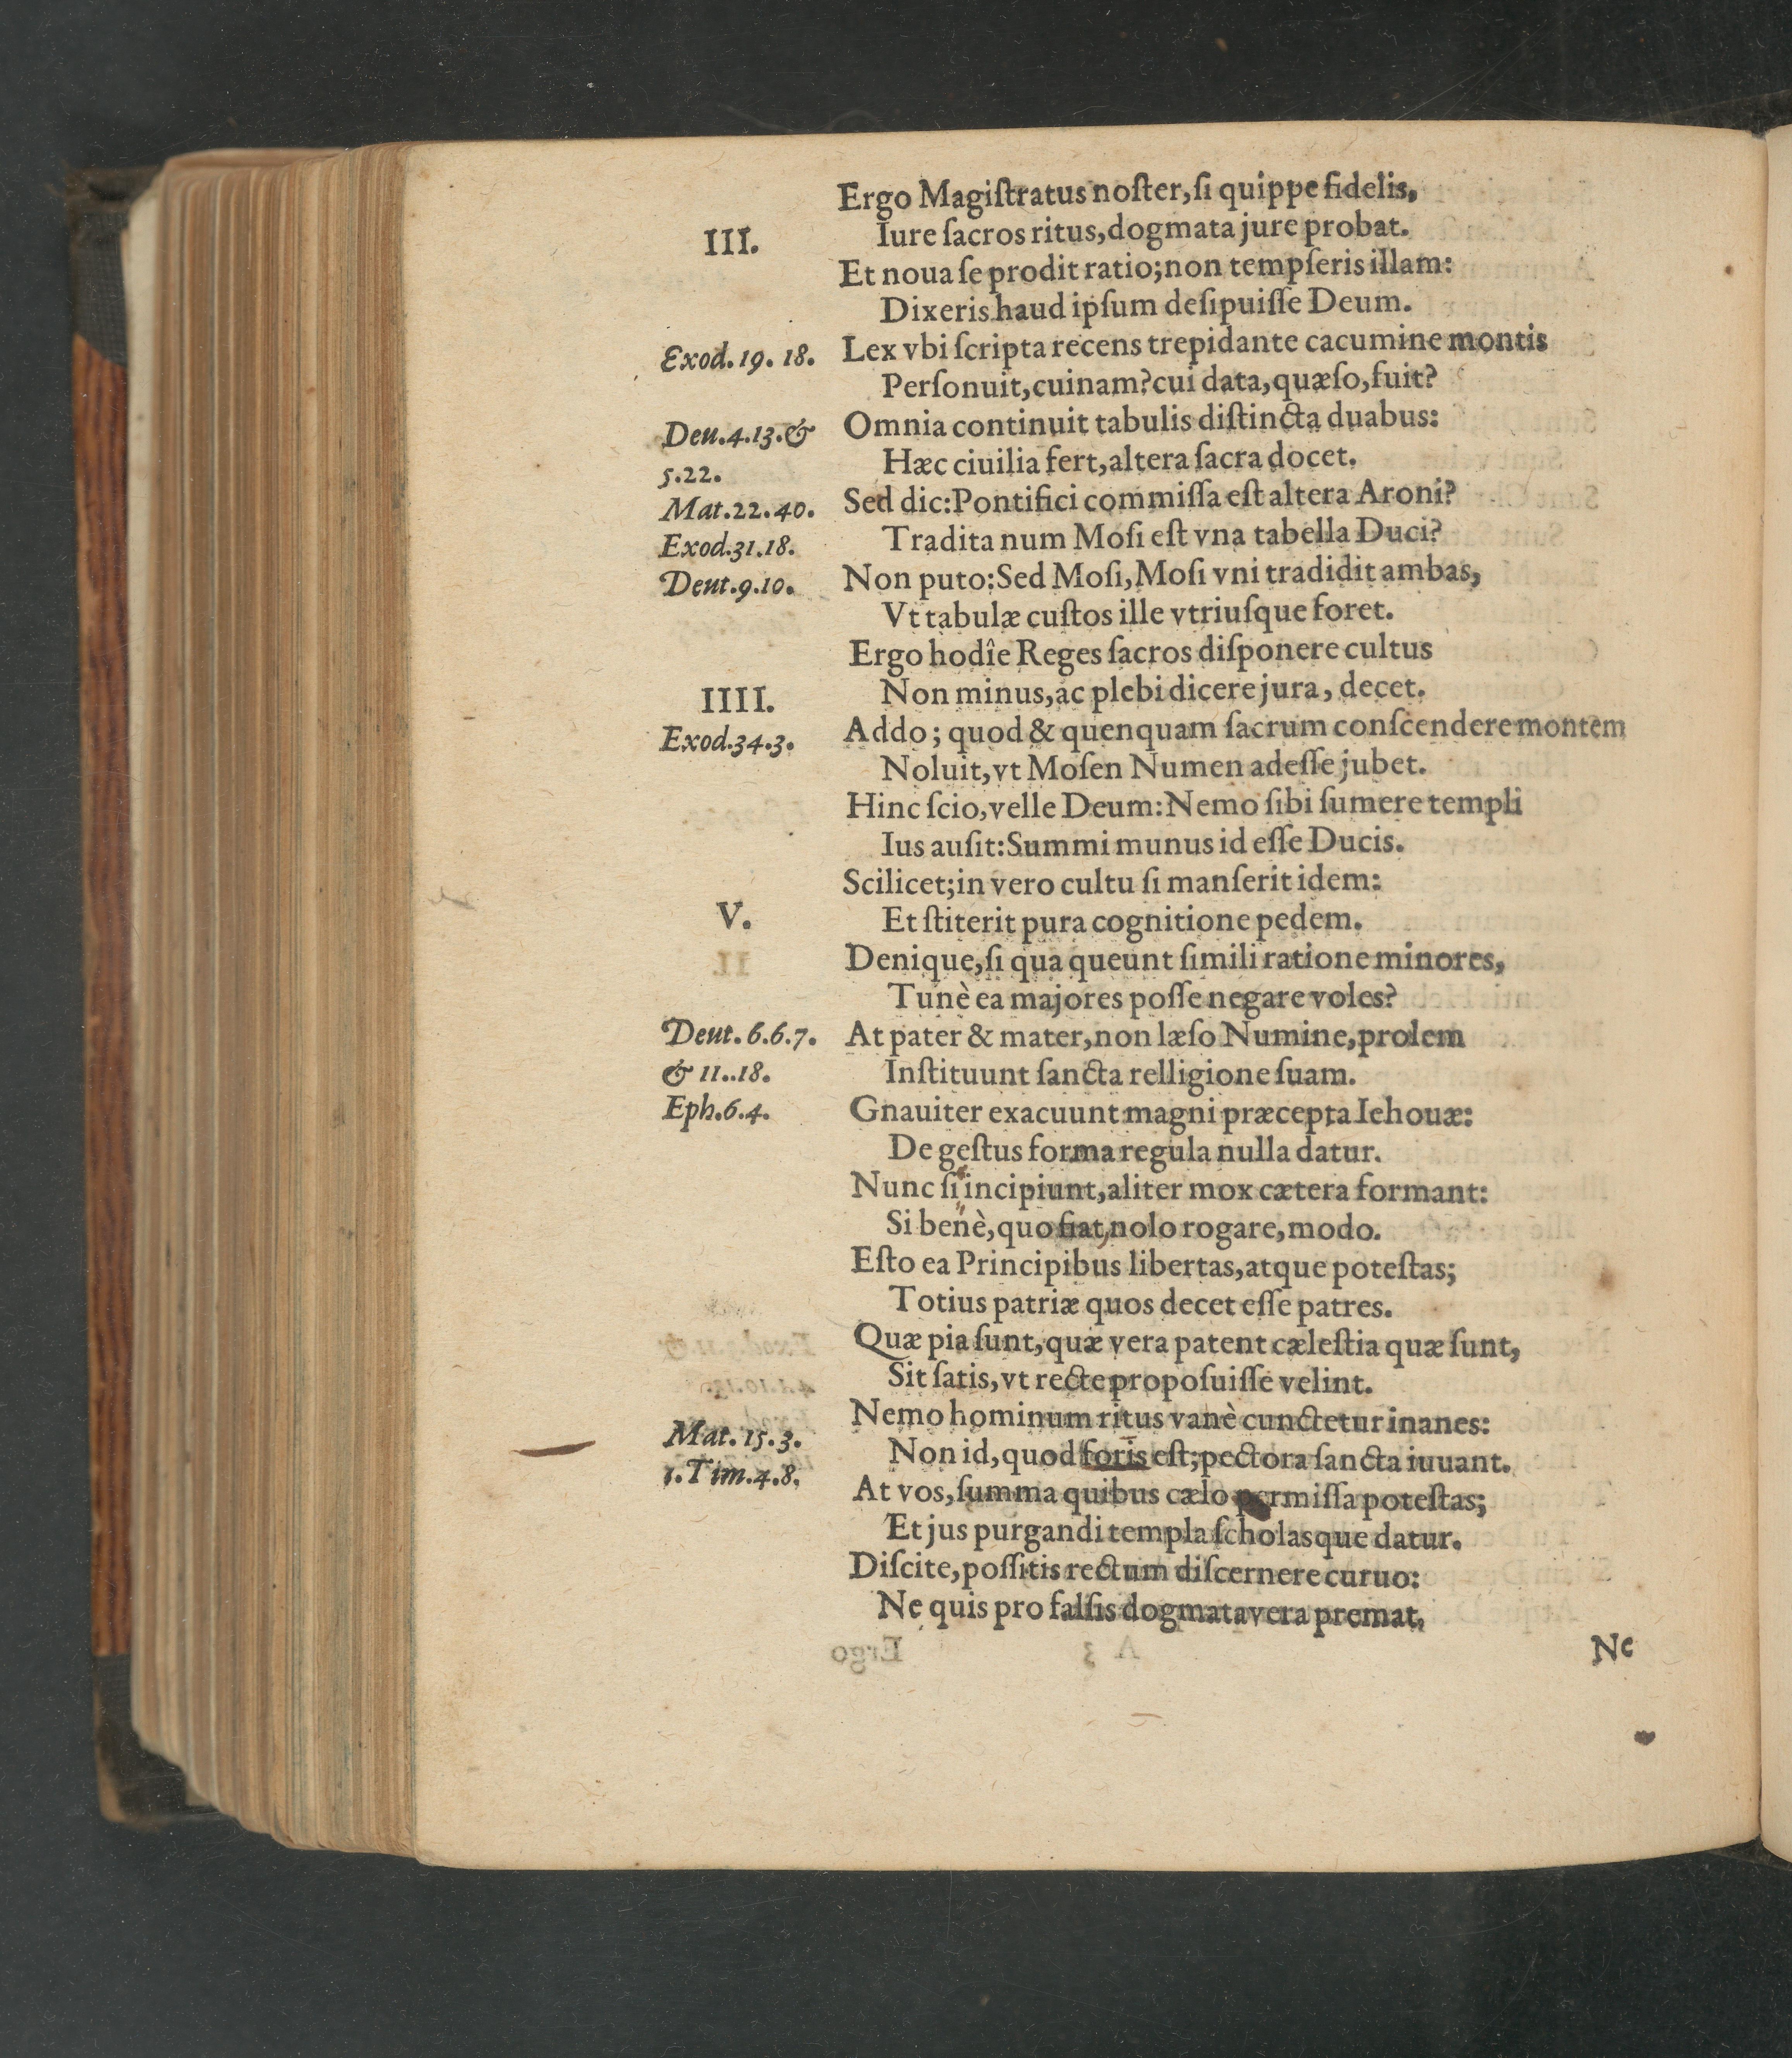 Ergo Magiſtratus noſter, ſi quippe fidelis,
III.
Iure ſacros ritus, dogmata jure probat.
Et noua ſe prodit ratio; non tempſeris illam:
Dixeris haud ipſum deſipuiſſe Deum.
Exod. 19. 18.
Lex vbi ſcripta recens trepidante cacumine montis
Perſonuit, cuinam? cui data, quæſo, fuit?
Deu. 4. 13. &
Omnia continuit tabulis diſtincta duabus:
5. 22.
Hæc ciuilia fert, altera ſacra docet.
Mat. 22. 40.
Sed dic: Pontifici commiſſa eſt altera Aroni?
Exod. 31. 18.
Tradita num Moſi eſt vna tabella Duci?
Deut. 9. 10.
Non puto: Sed Moſi, Moſi vni tradidit ambas,
Vt tabulæ cuſtos ille vtriuſque foret.
Ergo hodîe Reges ſacros diſponere cultus
IIII.
Non minus, ac plebi dicere jura, decet.
Exod. 34. 3.
Addo; quod & quenquam ſacrum conſcendere montem
Noluit, vt Moſen Numen adeſſe jubet.
Hinc ſcio, velle Deum: Nemo ſibi ſumere templi
Ius auſit: Summi munus id eſſe Ducis.
Scilicet; in vero cultu ſi manſerit idem:
V.
Et ſtiterit pura cognitione pedem.
Denique, ſi qua queunt ſimili ratione minores,
Tunè ea majores poſſe negare voles?
Deut. 6. 6. 7.
At pater & mater, non læſo Numine, prolem
& 11.. 18.
Inſtituunt ſancta relligione ſuam.
Eph. 6. 4.
Gnauiter exacuunt magni præcepta Iehouæ:
De geſtus forma regula nulla datur.
Nunc ſi incipiunt, aliter mox cætera formant:
Si benè, quo fiat, nolo rogare, modo.
Eſto ea Principibus libertas, atque poteſtas;
Totius patriæ quos decet eſſe patres.
Quæ pia ſunt, quæ vera patent cæleſtia quæ ſunt,
Sit ſatis, vt recte propoſuiſſe velint.
Nemo hominum ritus vanè cunctetur inanes:
Mat. 15. 3.
Non id, quod foris eſt; pectora ſancta iuuant.
1. Tim. 4. 8.
At vos, ſumma quibus cælo permiſſa poteſtas;
Et jus purgandi templa ſcholasque datur.
Diſcite, poſſitis rectum diſcernere curuo:
Ne quis pro falſis dogmata vera premat,
Ne